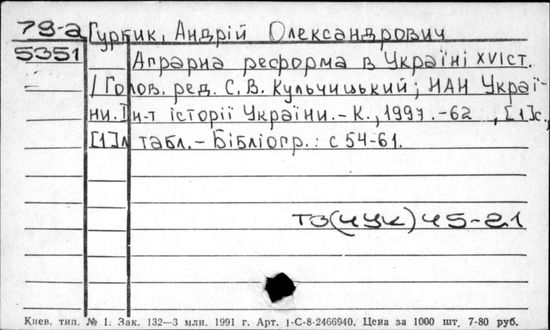 79-а Гурбик, Андрій Олександрович
5351 Аграрна реформа в Україні XVI ст.
/ Голов. ред. С. В. Кульчицький; НАН Украї-
ни. Ін-т історії України. - К., 1997. - 62 , [1]с.,
[1]л табл. - Бібліогр.: с 54-61.
ТЗ(4УК)45-21
Киев. тип. № 1. Зак. 132—3 млн. 1991 г. Арт. 1-С-8-2466940. Цена за 1000 шт. 7-80 руб.